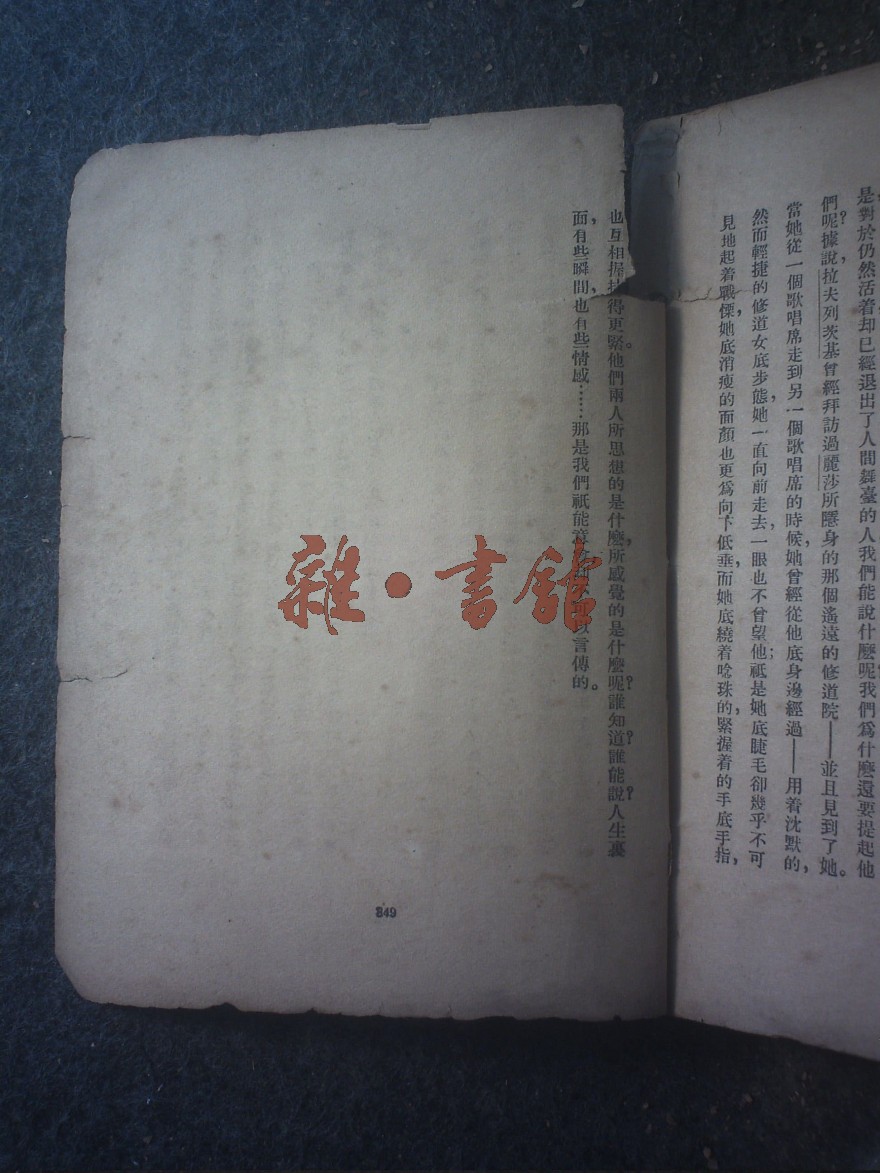 是對於仍然活着却已經退出了人間舞臺的人我們能說什麽呢我們爲什麽還要提起他
們呢？據說，拉夫列茨基曾經拜訪過麗莎所隱身的那個遙遠的修道院——並且見到了她。
當她從一個歌唱席走到另一個歌唱席的時候，她曾經從他底身邊經過——用着沈默的，
然而輕捷的修道女底步態，她一直向前走去，一眼也不曾望他；祇是她底睫毛卻幾乎不可
見地起着戰慄，她底消瘦的面顏也更爲向下低垂，而她底繞着唸珠的緊握着的手底手指，
也互相握 得更緊。他們兩人所思想的是什麽，所感覺的是什麽呢？誰知道？誰能說？人生裏
面，有些瞬間，也有些情感……那是我們祇能 以言傳的。
849
雜·書舘